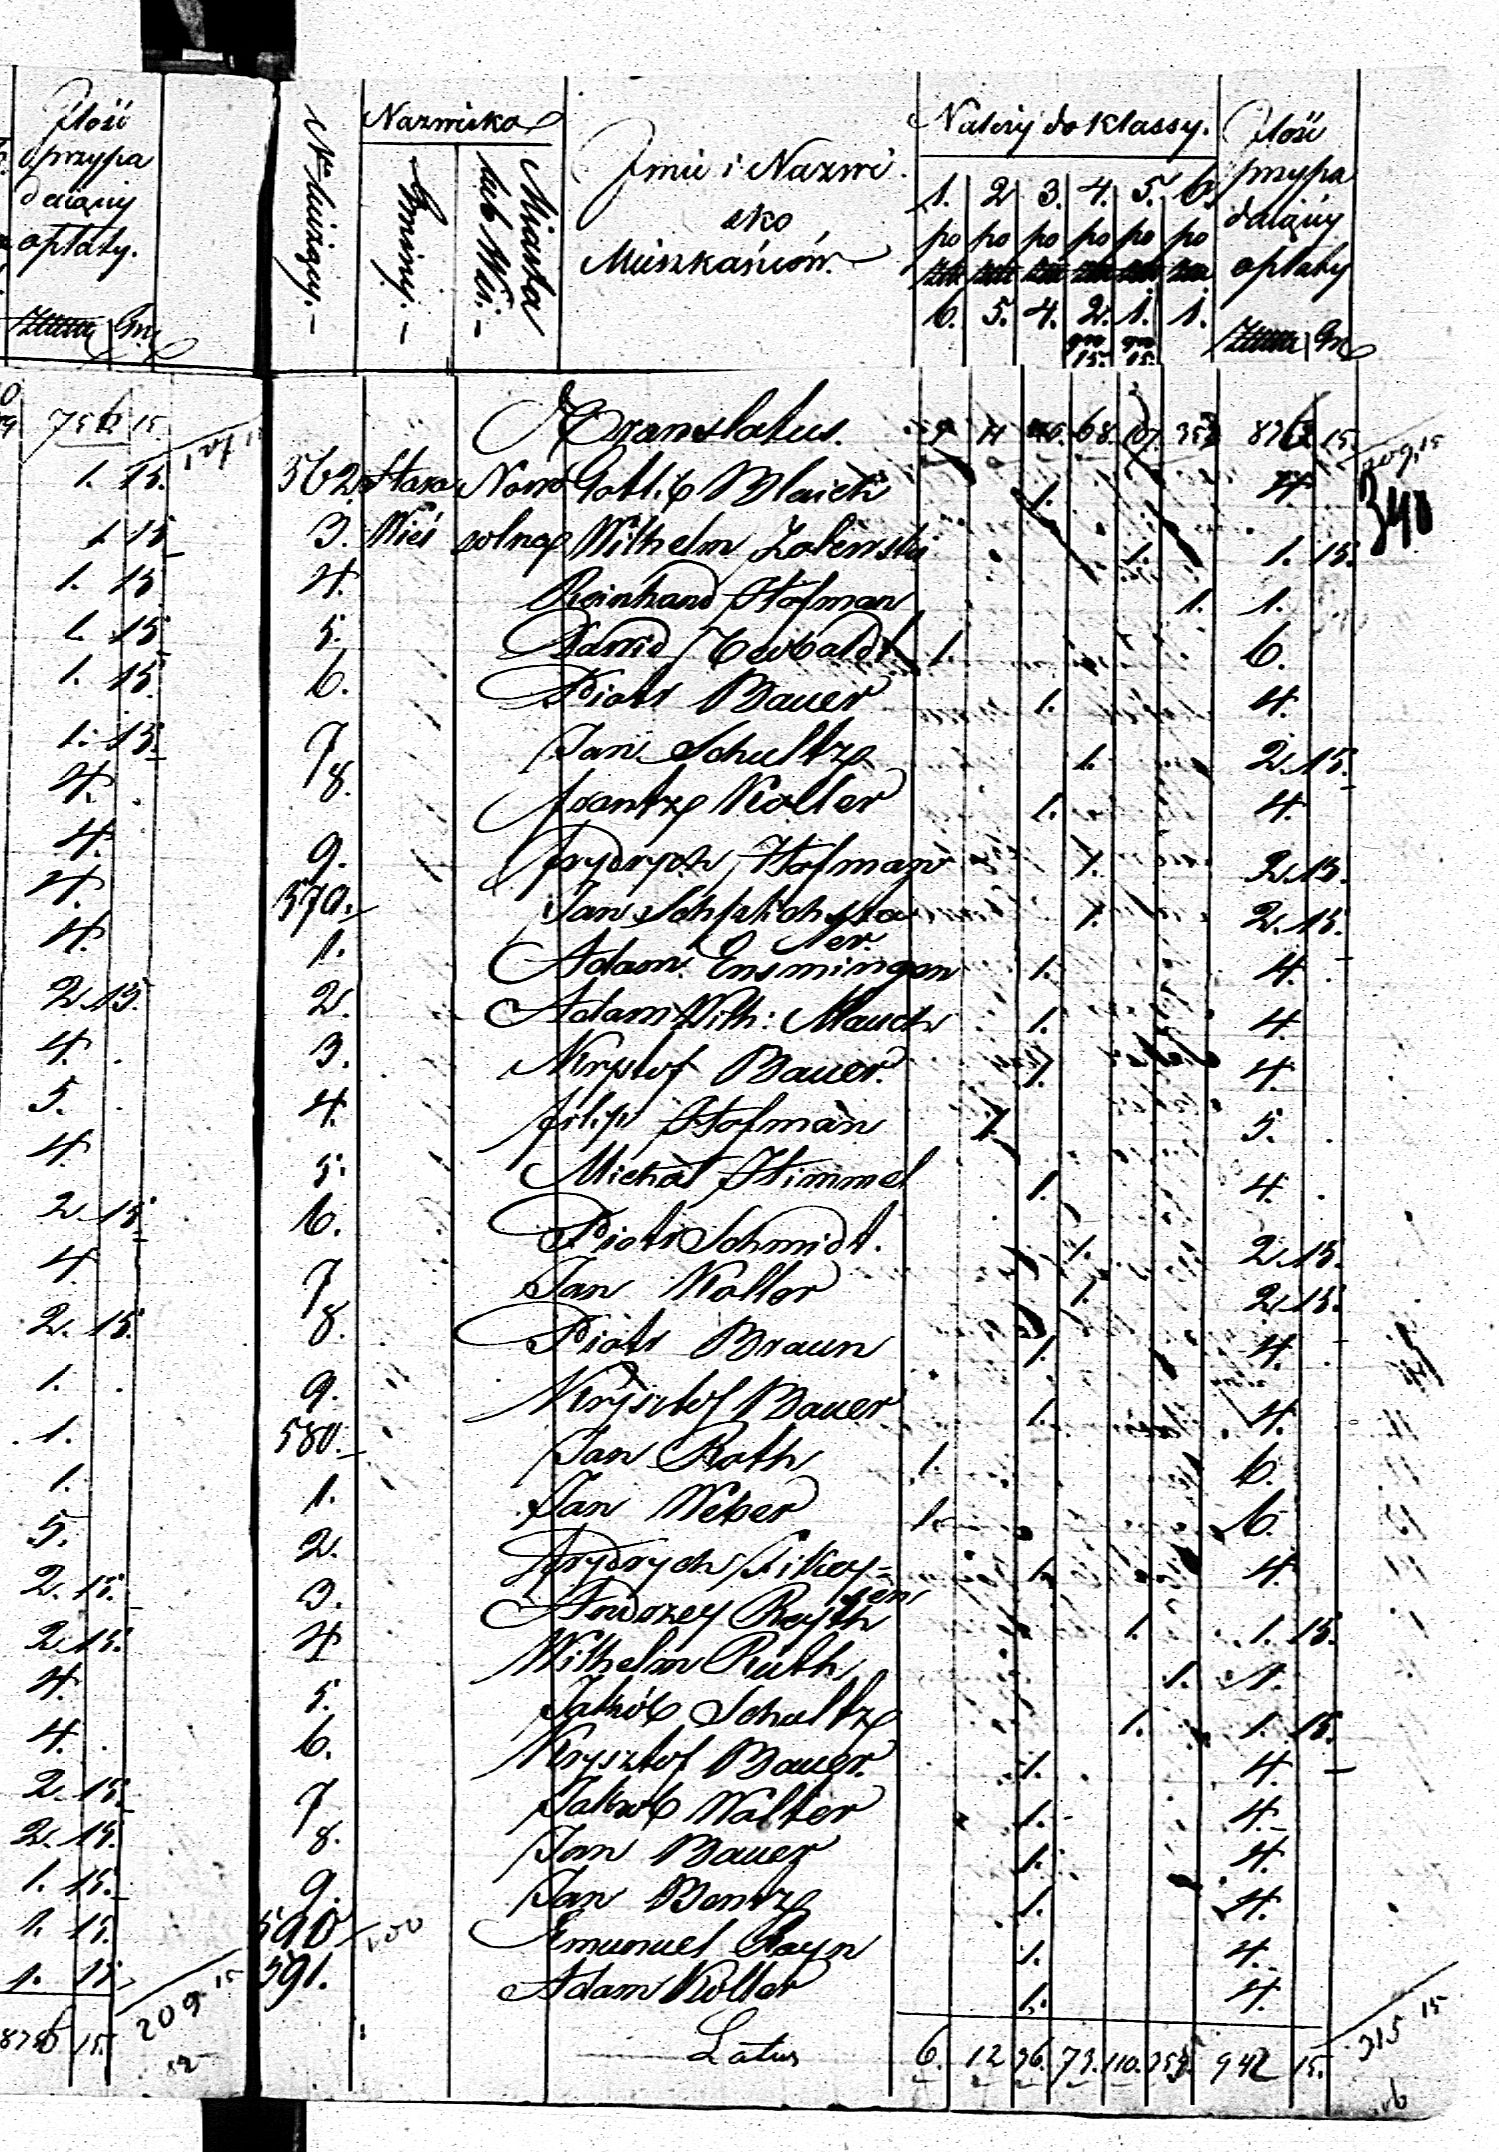 Ilość
przypa
daiącey
opłaty.
Gr.
756 15.
1. 15.
1 15
1. 15
1. 15
1. 15.
1. 15.
4.
4.
4.
4.
2. 15.
4.
5.
4.
2. 15.
4.
2. 15.
1.
1.
1.
5.
2. 15.
2. 15.
4.
4.
2. 15.
2. 15.
1. 15.
1. 15.
1. 15.
15.
209 15
N bieżący.
Nazwisko
Gminy.
Miasta
lub Wsi.
Imie i Nazwi
sko
Mieszkańców.
Należy do Klassy.
1. 2 3. 4. 5. 6.
po po po po po po
6. 5. 4. 2. 1. 1.
gro gro
15. 15.
Ilość
przypa
daiącey
opłaty
Gr
Translatus. 68. 15.
340
562 Stara Nowo Gottlib Blaich 1. 4
3. Wieś solna Wilhelm Zalewski 1. 1. 15.
4. Reinhand Hofman 1. 1.
5. Dawid 1. 6.
6. Piotr Bauer 1. 4.
7 Jan Schultz 1. 2. 15.
8. Frantz Koller 1. 4.
9. Frydrych Hofman 1. 2. 15.
570. Jan 1. 2. 15.
1. Adam Ensminger 1. 4.
2. Adam Wilh: Mauch 1. 4.
3. Krysztof Bauer. 1. 4.
4. Filip Hofman 1. 5.
5. Michał Himmel 1. 4.
6. Piotr Schmidt. 1. 2. 15.
7 Jan Koller 1. 2. 15.
8. Piotr Braun 1. 4.
9. Krysztof Bauer 1. 4.
580. Jan Roth 1. 6.
1. Jan Weber 1. 6.
2. Frydrych 1. 4.
3. Andrzey Reyth 1. 1. 15.
4 Wilhelm Ruth 1. 1.
5. Jakób Schultz 1. 1. 15.
6. Krysztof Bauer. 1. 4.
7 Jakob Walter 1. 4.
8. Jan Bauer 1. 4.
9. Jan Bentz 1. 4.
590 Emanuel Rayn 1. 4.
591. Adam Koller 1. 4.
Latus 6. 12 36. 73. 110. 942 15.
315 15